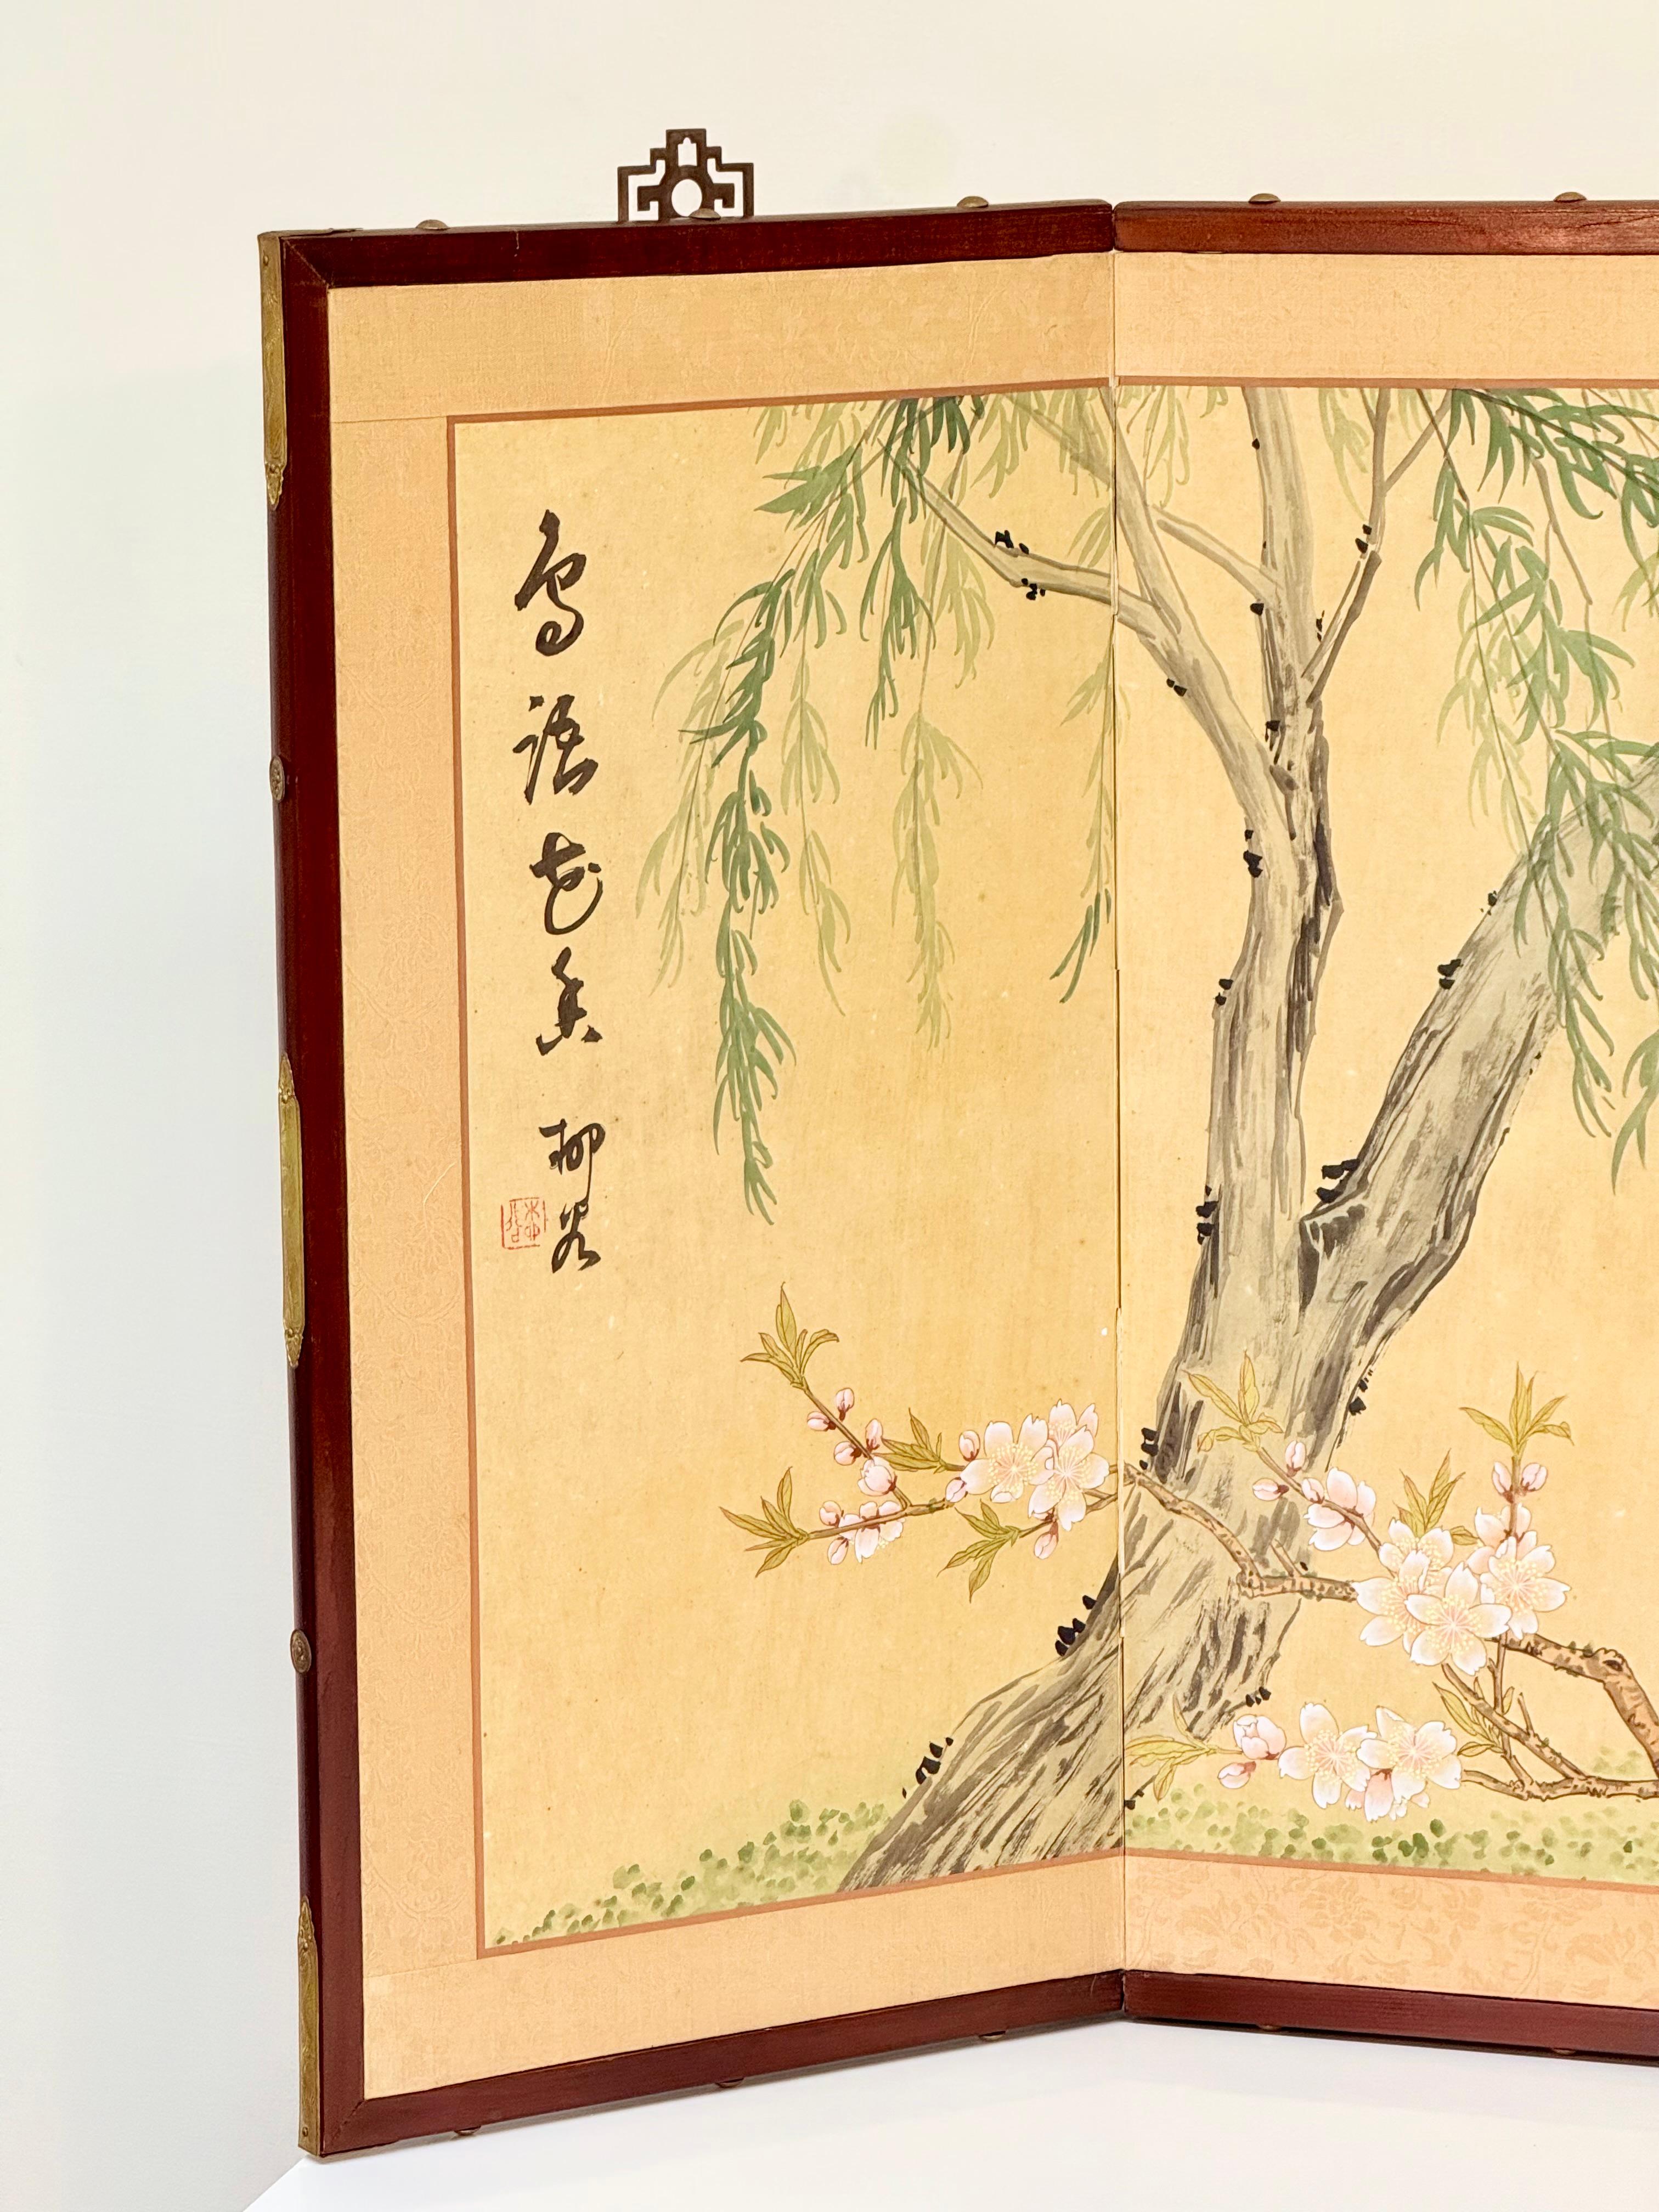 鳥語花香 柳谷